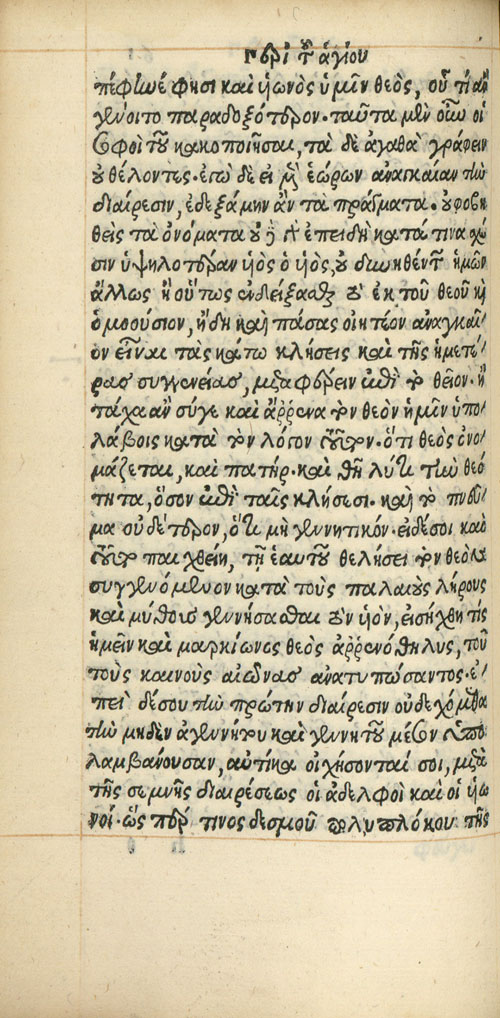 περὶ τοῦ ἁγίου
πέφηνέ φησι καὶ ὑωνὸς ἡμῖν θεὸς, οὗ τί ἂν
γένοιτο παραδοξότερον. ταῦτα μὲν οὖν οἱ
σοφοὶ τοῦ κακοποιῆσαι, τὰ δὲ ἀγαθὰ γράφειν
οὐ θέλοντες. ἐγὼ δὲ εἰ μὲν ἑώρων ἀναγκαίαν τὴν
διαίρεσιν, ἐδεξάμην ἂν τὰ πράγματα. οὐ φοβη
θεὶς τὰ ὀνόματα οὐ γὰρ ἐπειδὴ κατά τινα σχέ
σιν ὑψηλοτέραν ὑὸς ὁ ὑὸς, οὐ δυνηθέντων ἡμῶν
ἄλλως ἢ οὕτως ἐνδείξασθαι τὸ ἐκ τοῦ θεοῦ καὶ
ὁμοούσιον, ἤδη καὶ πάσας οἰητέον ἀναγκαῖ
ον εἶναι τὰς κάτω κλήσεις καὶ τῆς ἡμετέ
ρας συγγενείας, μεταφέρειν ἐπὶ τὸ θεῖον. ἢ
τάχα ἂν σύγε καὶ ἄῤῥενα τὸν θεὸν ἡμῖν ὑπο
λάβοις κατὰ τὸν λόγον τοῦτον. ὅτι θεὸς ὀνο
μάζεται, καὶ πατήρ. καὶ θῆλύ τι τὴν θεό
τητα, ὅσον ἐπὶ ταῖς κλήσεσι. καὶ τὸ πνεῦ
μα οὐδέτερον, ὅτι μὴ γεννητικόν. εἰδέσοι καὶ
τοῦτο παιχθείη, τῇ ἑαυτοῦ θελήσει τὸν θεὸν
συγγενόμενον κατὰ τοὺς παλαιοὺς λήρους
καὶ μύθους γεννήσασθαι τὸν ὑὸν, εἰσήχθη τίς
ἡμῖν καὶ μαρκίωνος θεὸς ἀῤῥενόθηλυς, τοῦ
τοὺς καινοὺς αἰῶνας ἀνατυπώσαντος. ἐ
πεὶ δέσου τὴν πρώτην διαίρεσιν οὐδεχόμεθα
τὴν μηδὲν ἀγεννήτου καὶ γεννητοῦ μέσον ὑπο
λαμβάνουσαν, αὐτίκα οἰχήσονταί σοι, μετὰ
τῆς σεμνῆς διαιρέσεως οἱ ἀδελφοὶ καὶ οἱ ὑω
νοί. ὥς περ τινος δεσμοῦ πολυπλόκου τῆς